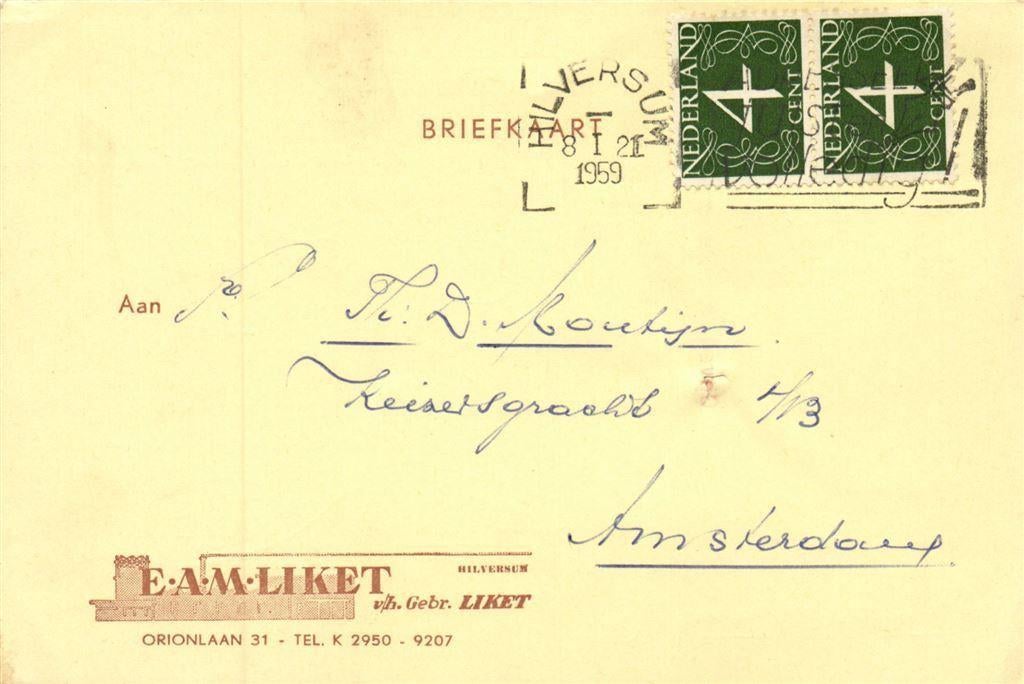 NEDERLAND 4 CENT
NEDERLAND 4 CENT
HILVERSUM
8 I 21
1959
BRIEFKAART
Aan
Th. D. Montijn
Keizersgracht
Amsterdam
E·A·M·LIKET HILVERSUM
v/h. Gebr. LIKET
ORIONLAAN 31 - TEL. K 2950 - 9207